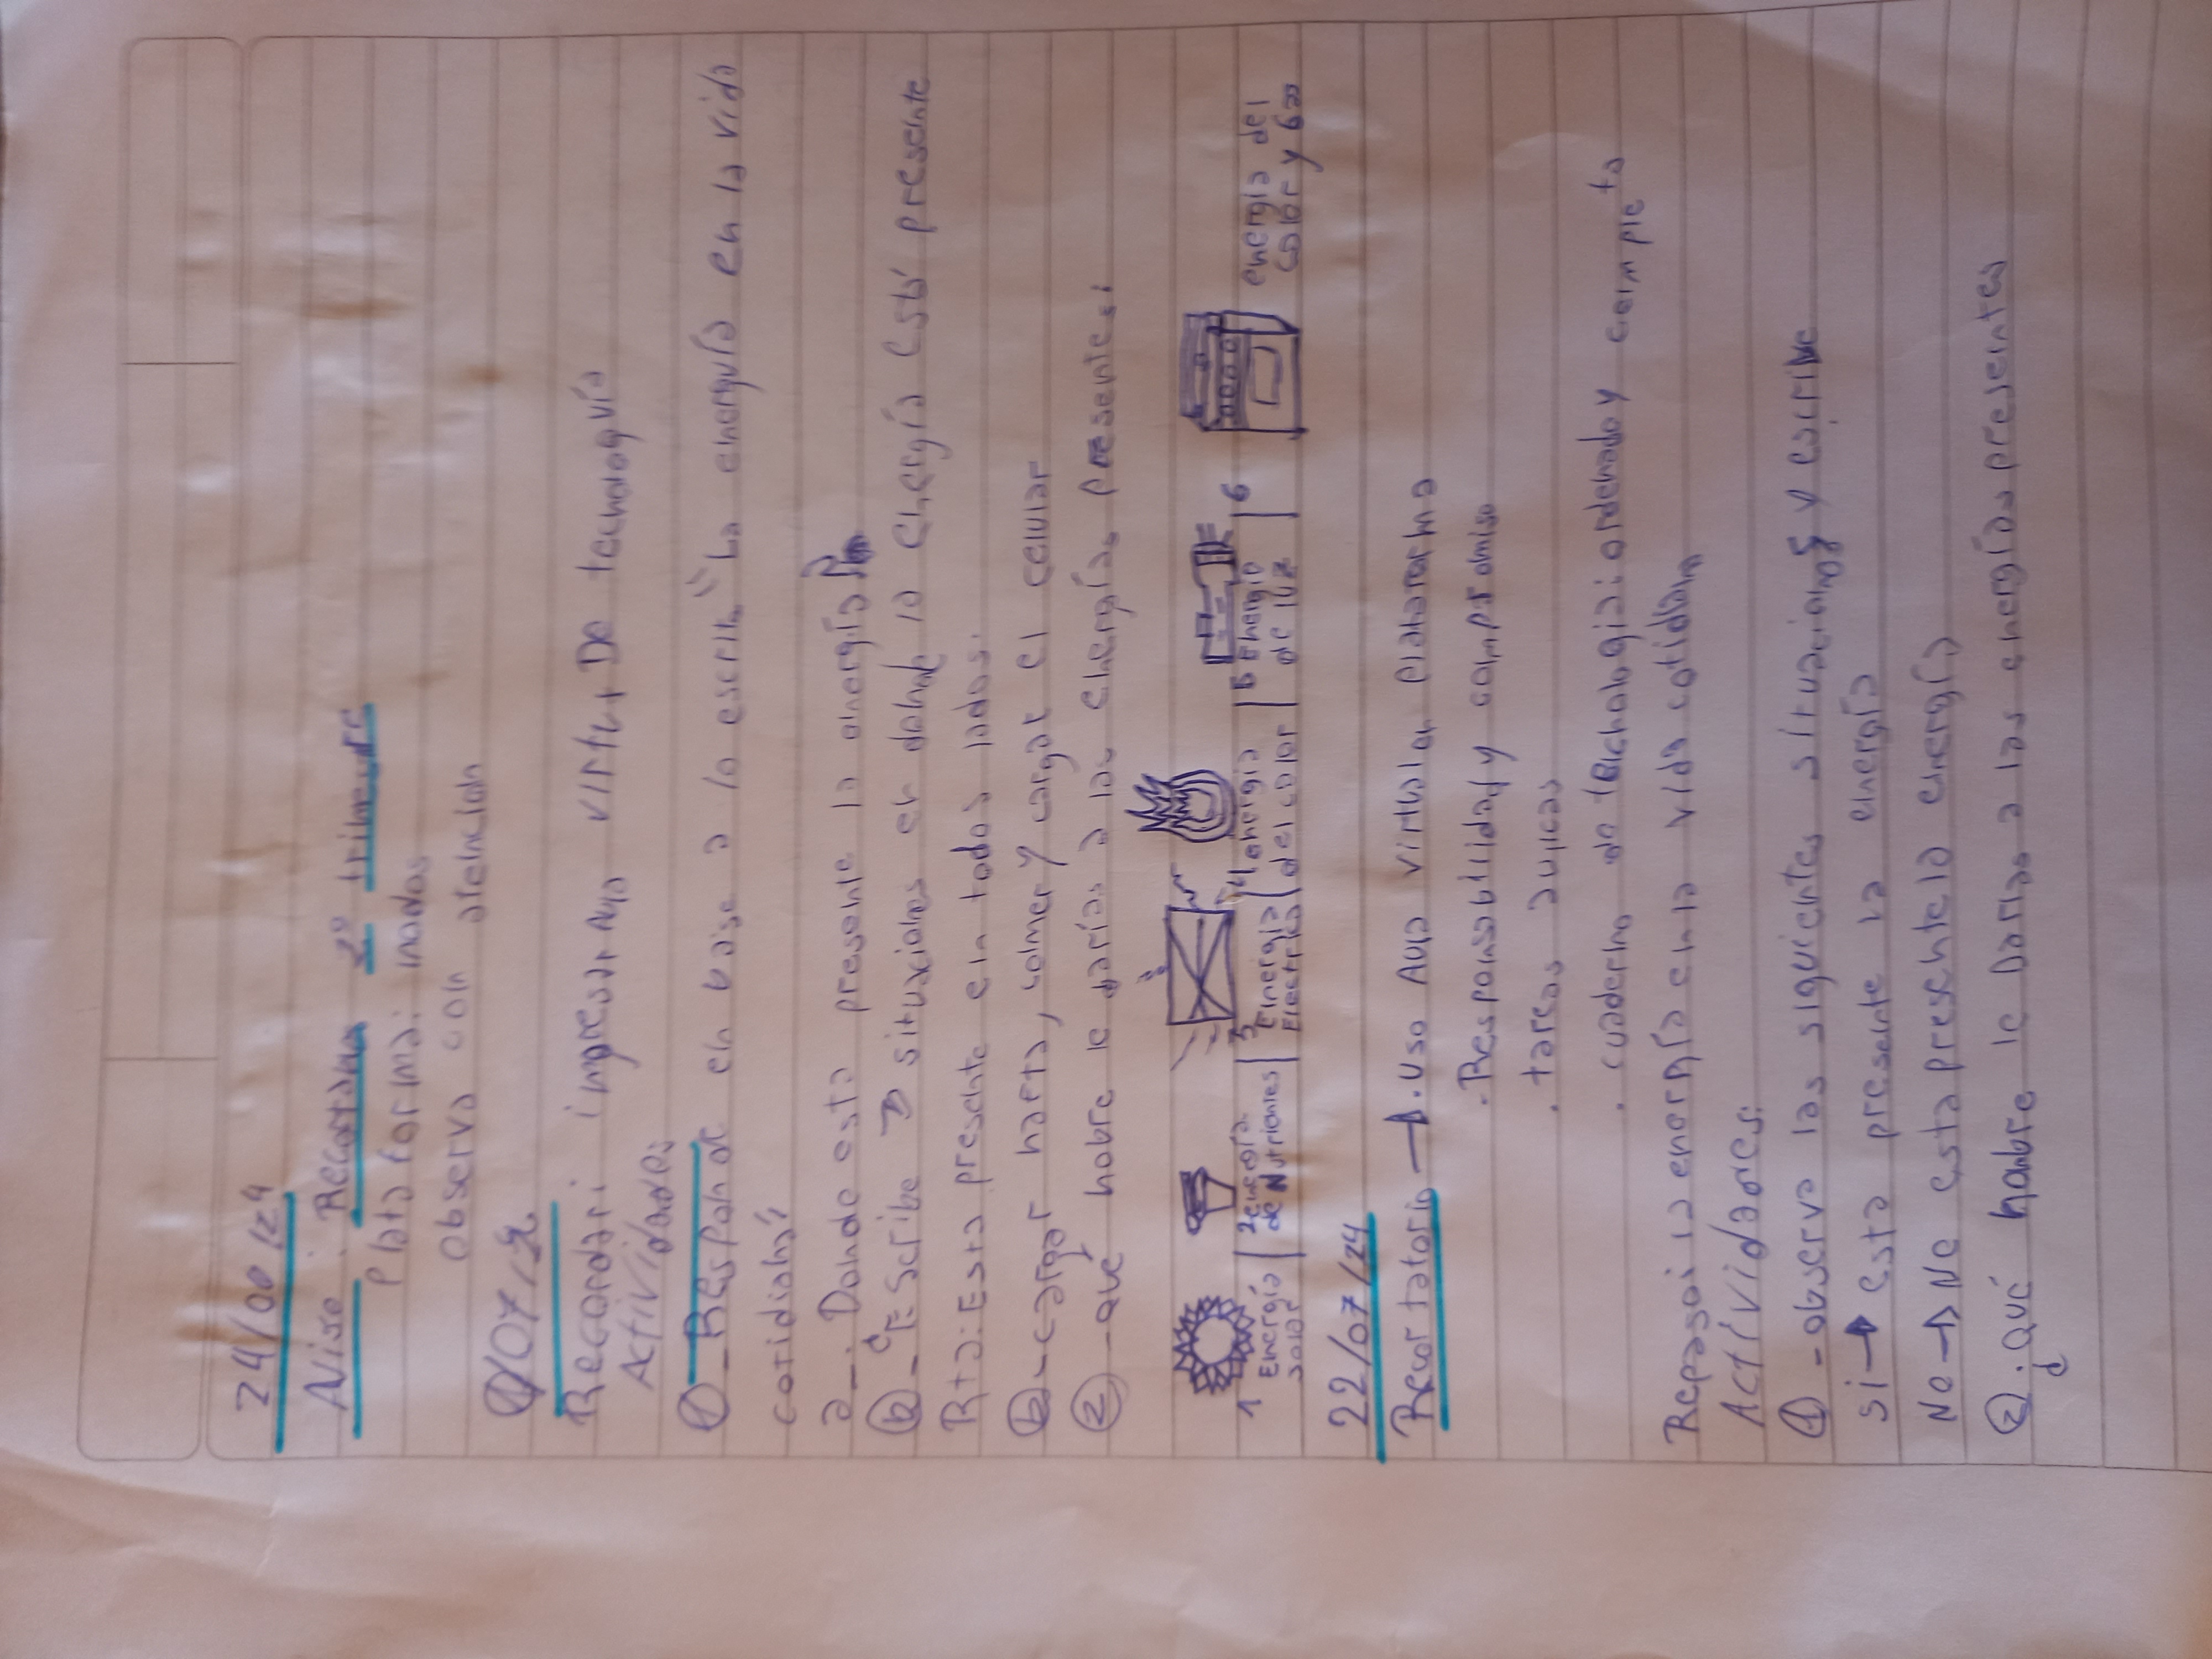 24/06/24
Aviso: Recortamos 2° trimestre
Plata forma:
observa con atención
/07/24
Recordar: ingresar Aula virtual De tecnología
Actividades:
1_Responde en base a lo escrito "La energía en la vida
cotidiana"
a_. Donde esta presente la energía
b_ Escribe 3 situaciones en donde la energía está presente
Rta: Esta presente en todos lados.
b_cargar , comer y cargar el celular
2 -que nobre le darías a las energías presente:
1 Energía solar | 2 energía de Nutricionales | 3 Energía Electrica | 4 energia del calor | 5 Energia de luz | 6 energía del calor y gas
22/07/24
Recortatorio → . Uso Aula virtual en plataforma
. Responsabilidad y compromiso
. tareas aulicas
. cuaderno de tecnologia: ordenado y completo
Repaso: la energía en la vida cotidiana
Actividades:
1 - observa las siguientes situaciones y escribe
si → esta presente la energía
No → No esta presente la energía
2 . qué nombre le Darías a las energías presentes